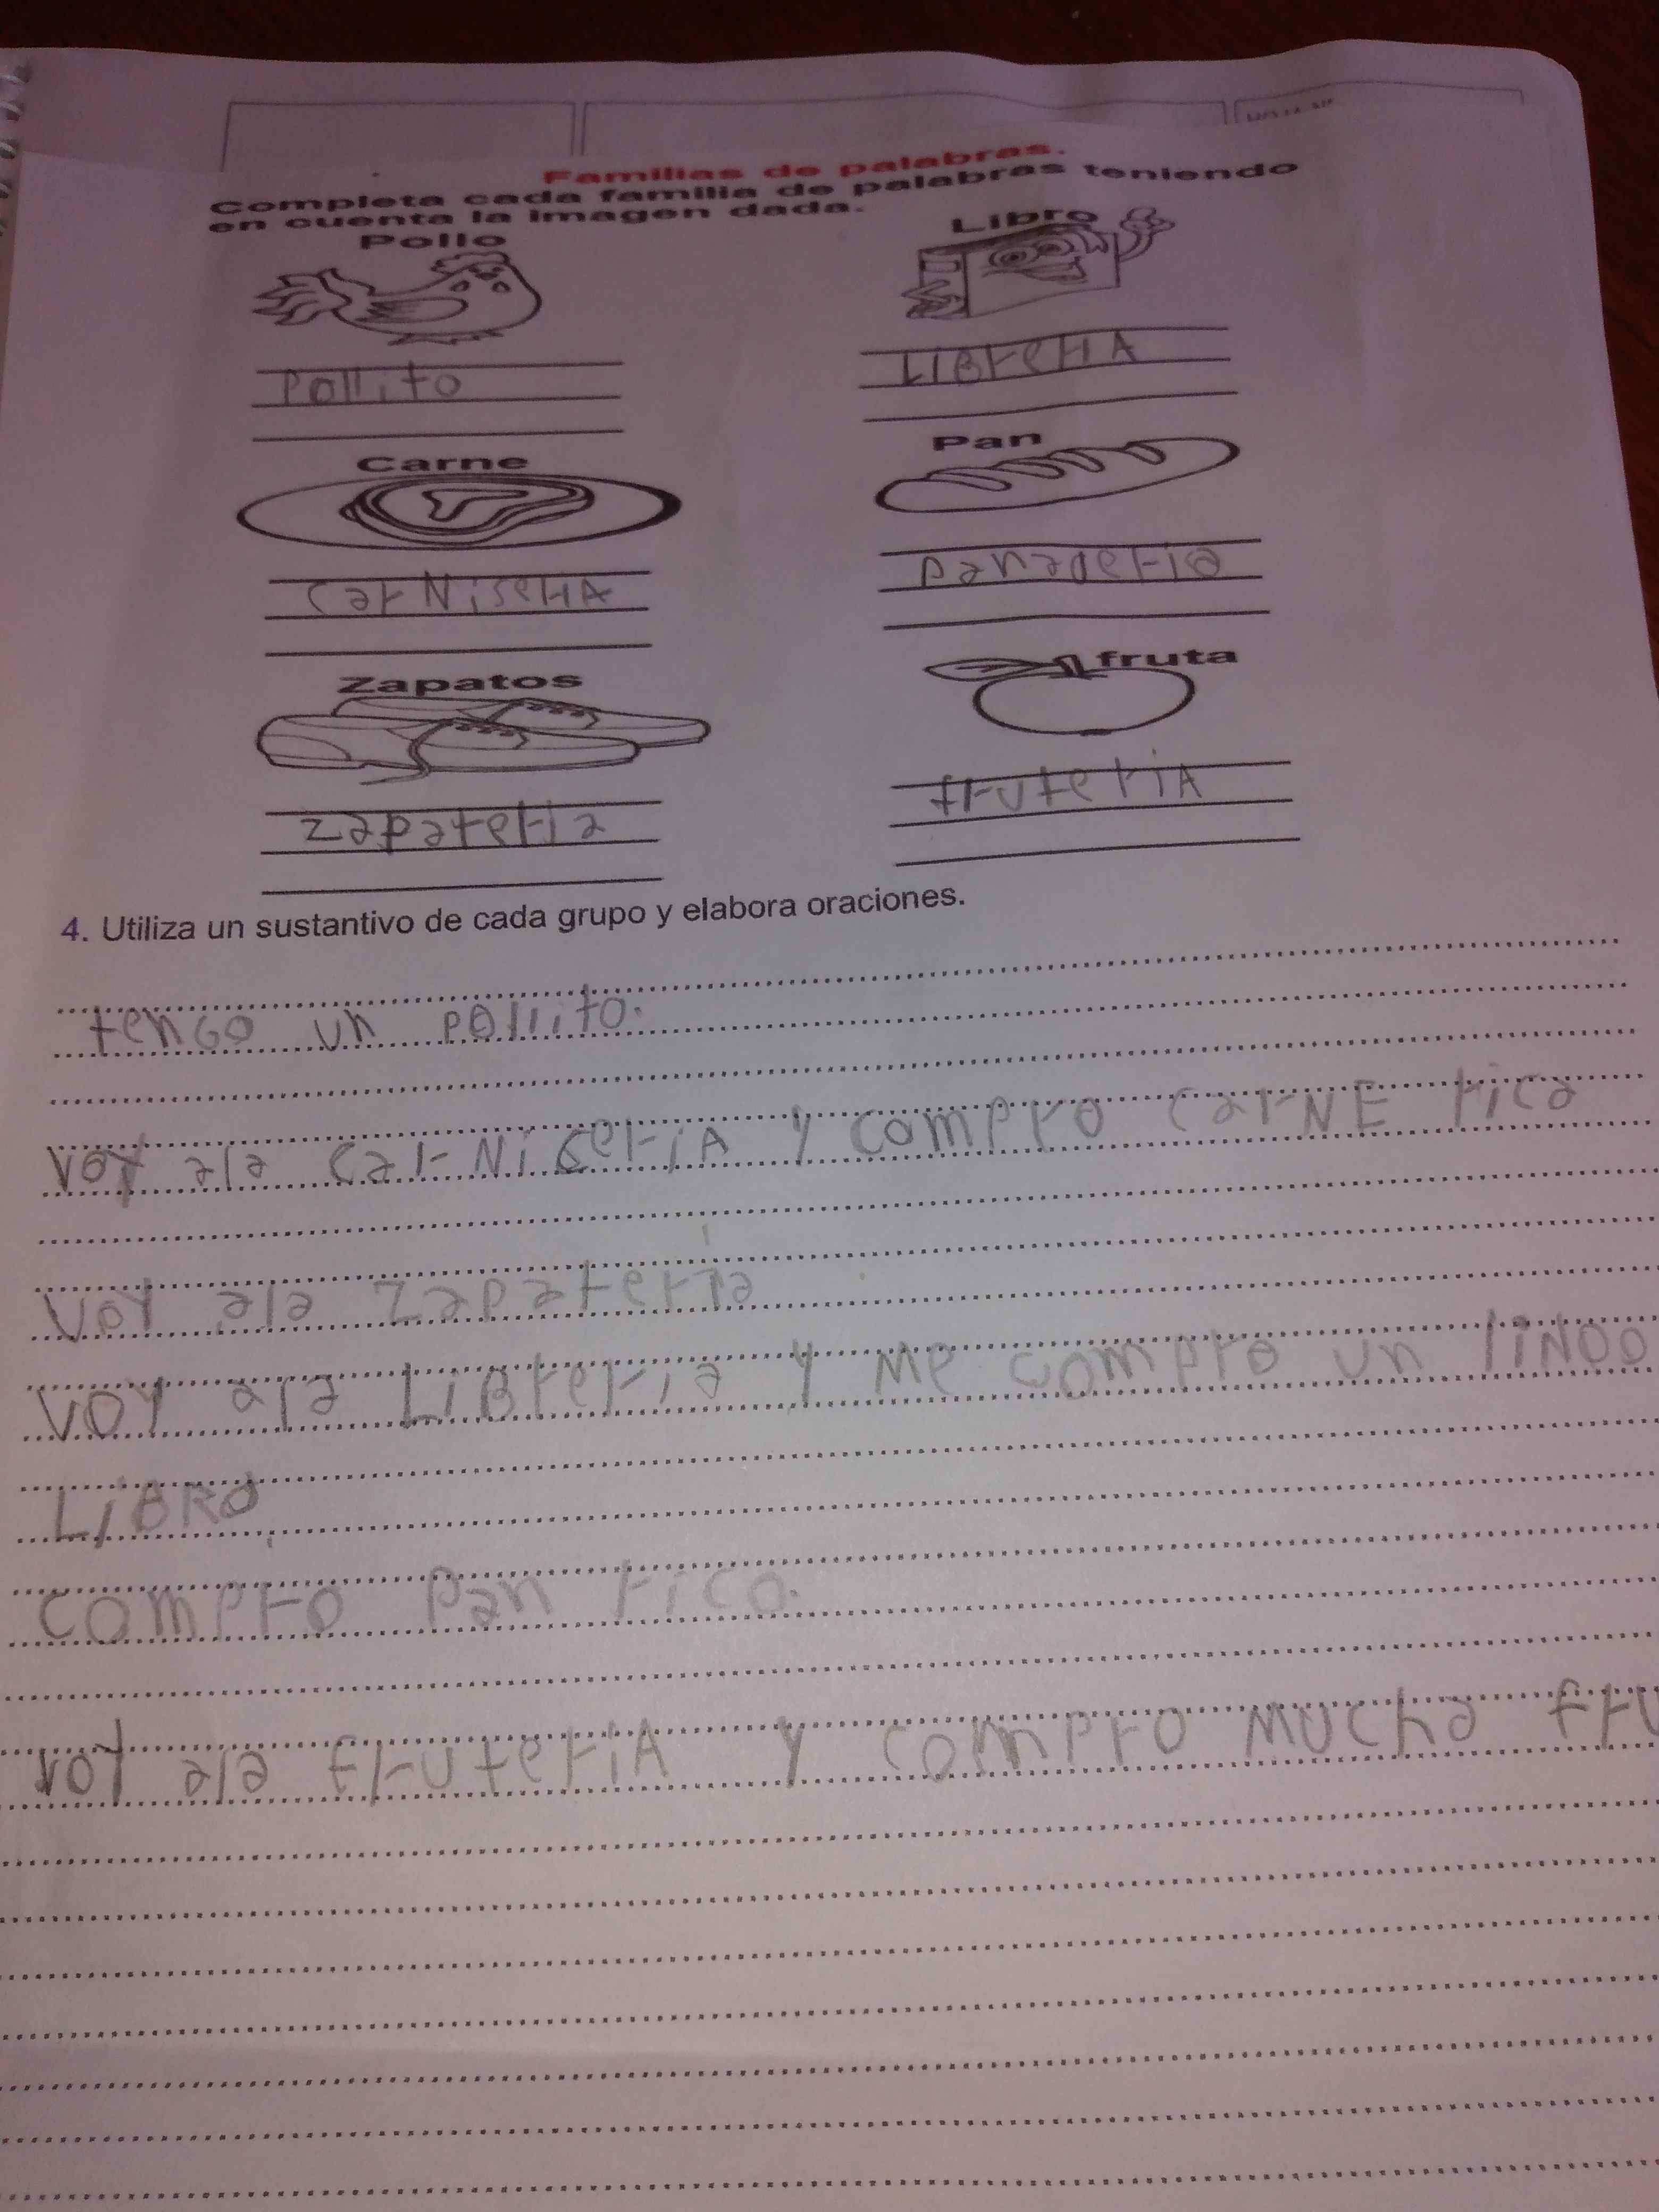 Familias de palabras.
Completa cada familia de palabras teniendo
en cuenta la imagen dada.
Pollo
Libro
Pollito
LIBreriA
Carne
Pan
carNiseriA
panaderia
Zapatos
fruta
zapateria
fruteriA
4. Utiliza un sustantivo de cada grupo y elabora oraciones.
tenGo un pollito.
voy ala carNiceriA y compro carNE rica
voy ala zapateria
voy ala LiBreria y Me compro un liNDo
LiBRo.
compro pan rico.
voy ala fruteriA y compro Mucha fru